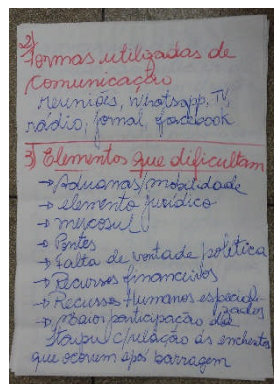 2)
Formas utilizadas de
comunicação
reuniões, whatsapp, TV,
rádio, jornal, facebook
3) Elementos que dificultam
→ Aduanas/mobilidade
→ elemento jurídico
→ mercosul
→ Pontes
→ Falta de vontade política
→ Recursos financeiros
→ Recursos Humanos especiali
zados
→ Maior participação da
Itaipu c/relação às enchentes
que ocorrem após barragem